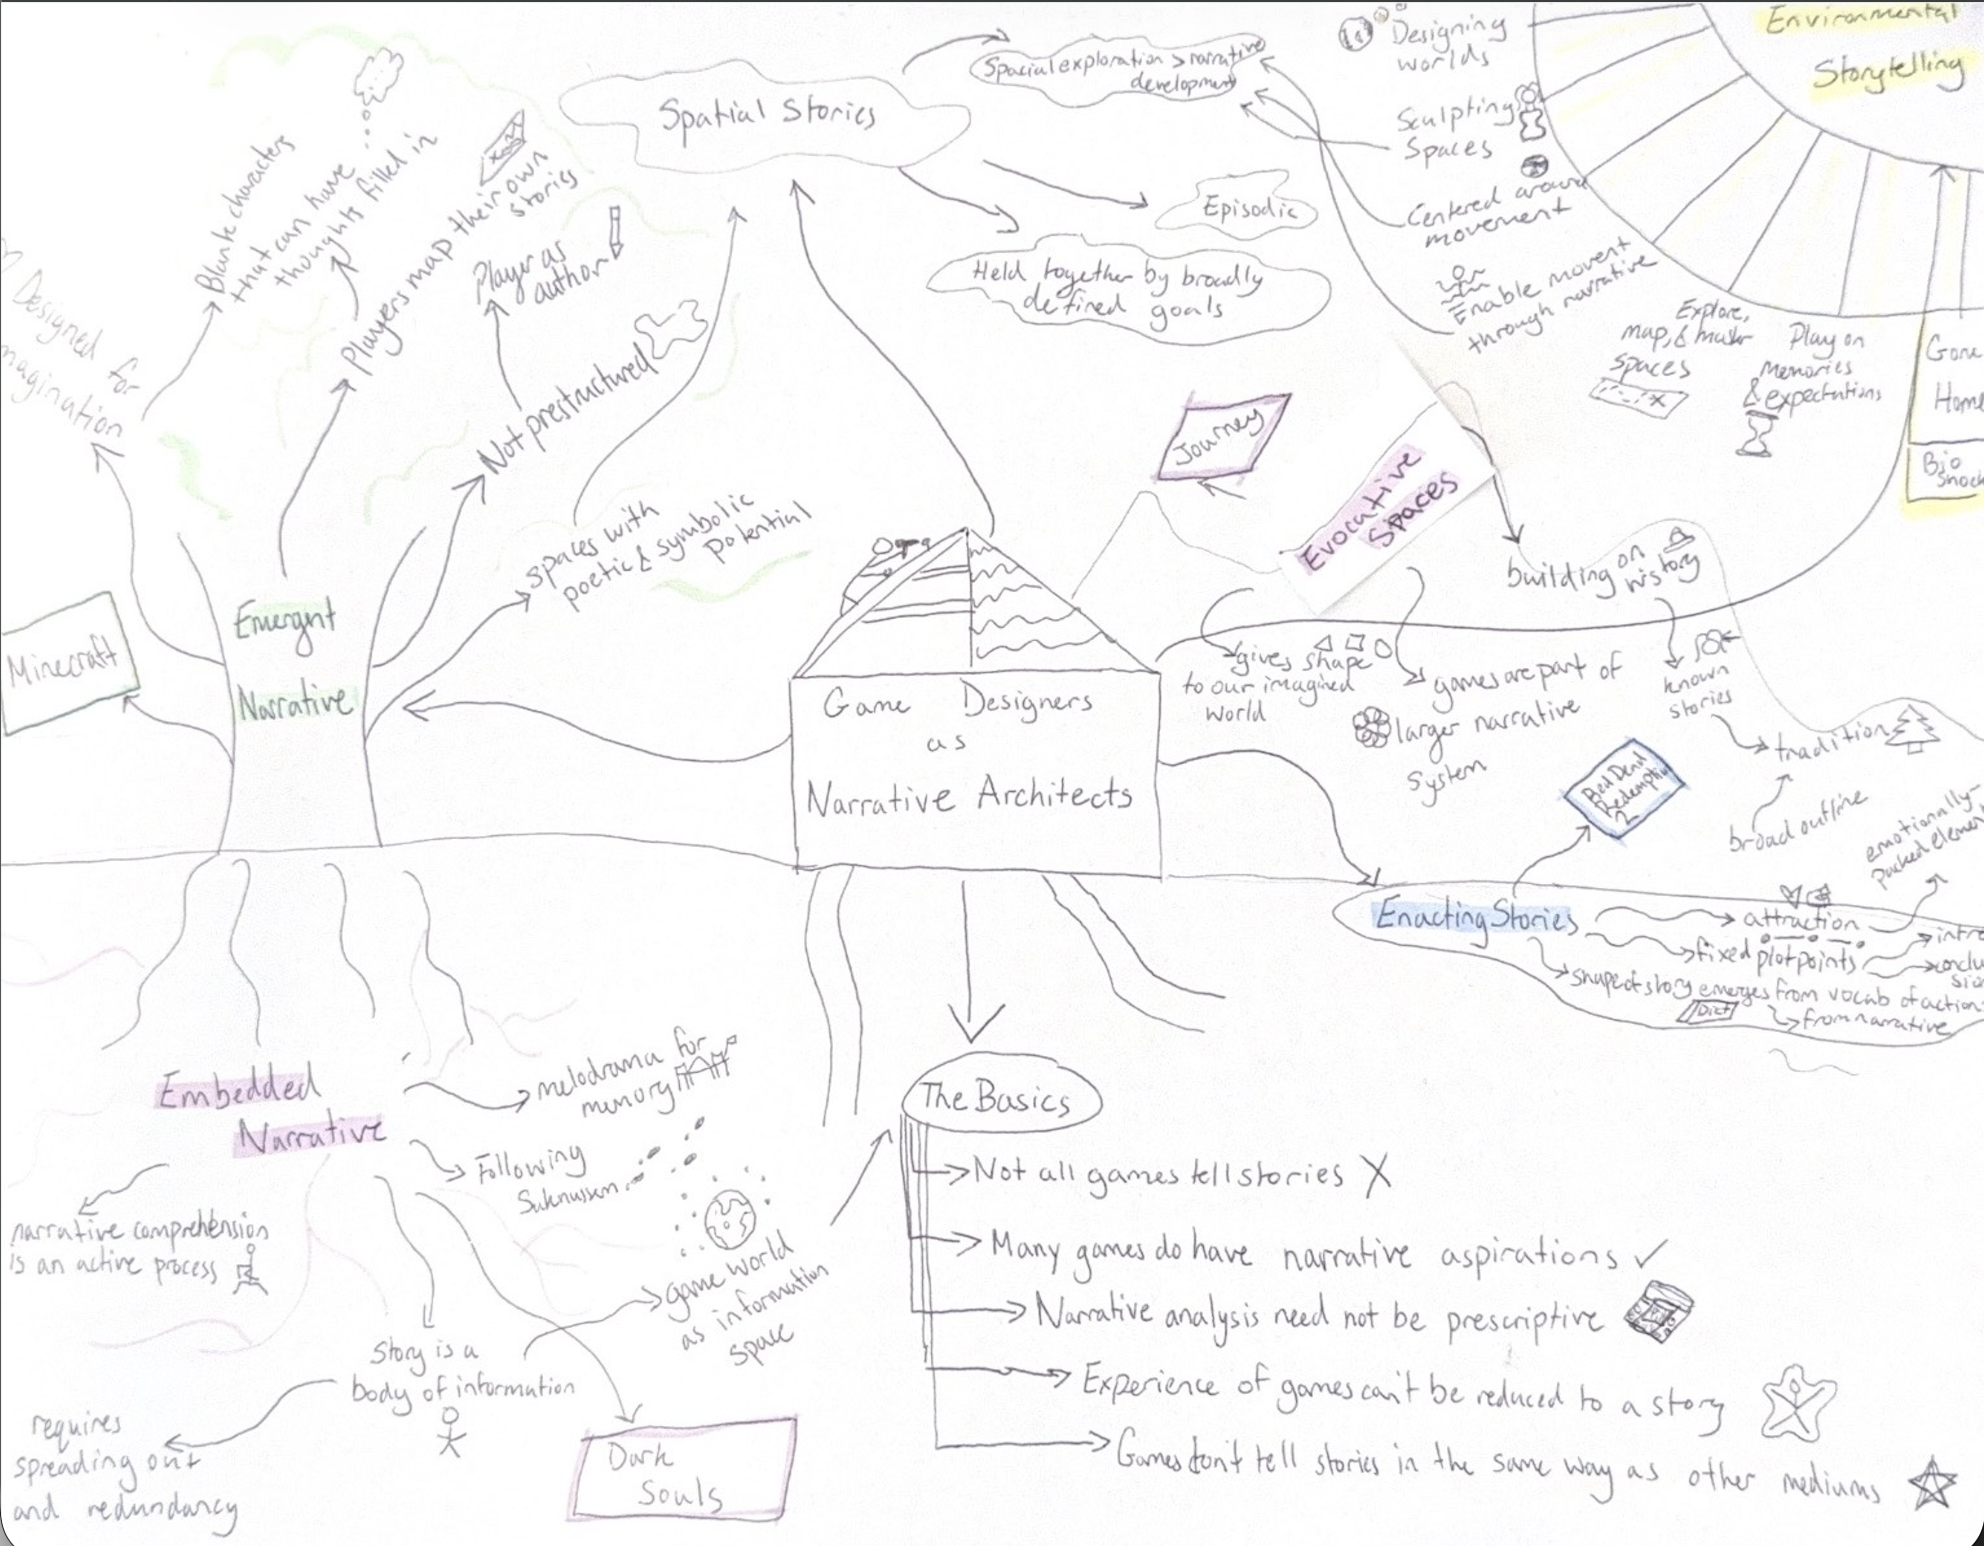 Environmental
Storytelling
Designing
worlds
Sculpting
Spaces
Centered around
movement
Enable movent
through narrative
Explore,
map, &
spaces
Play on
memories
& expectations
Gone
Home
Bio
Shock
Spatial Stories
Spacial exploration > narrative
development
Episodic
Held together by broadly
defined goals
Designed for
imagination
Blank characters
that can have
thoughts filled in
Players map their own
stories
Player as
author
Not prestructured
spaces with
poetic & symbolic
potential
Emergnt
Narrative
Minecraft
Journey
Evocative
Spaces
building on
history
known
stories
tradition
broad outline
gives shape
to our imagined
world
games are part of
larger narrative
system
Game Designers
as
Narrative Architects
Red Dead
Redemption
2
Enacting Stories
attraction
emotionally-
packed
fixed plot points
intro
conclu
sio
shape of story emerges from vocab of action
Dict
from narrative
Embedded
Narrative
melodrama for
memory
Following
narrative comprehension
is an active process
Story is a
body of information
requires
spreading out
and redundancy
game world
as information
space
Dark
Souls
The Basics
Not all games tell stories X
Many games do have narrative aspirations ✓
Narrative analysis need not be prescriptive
Experience of games can't be reduced to a story
Games don't tell stories in the same way as other mediums